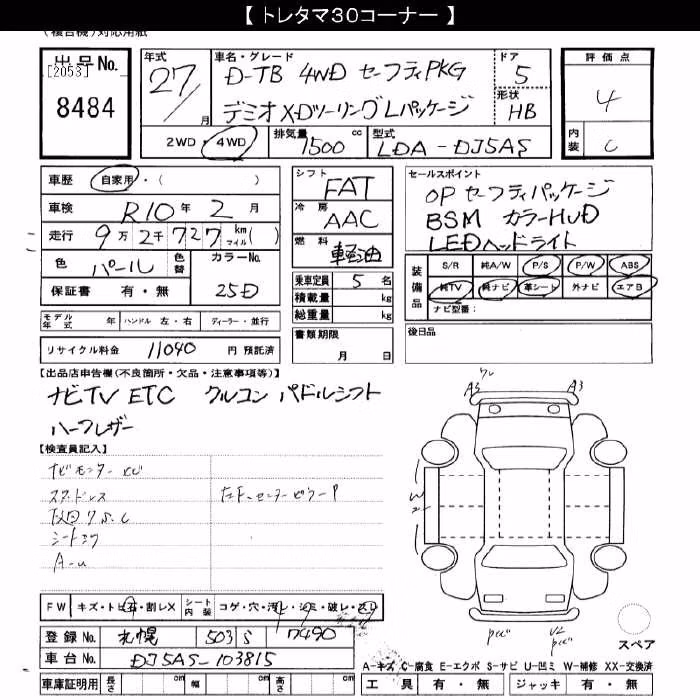 【 トレタマ30コーナー 】
(複合機)対応用紙
出品No. [2053] 8484
年式 27/ 月
車名・グレード D-TB 4WD セーフティPKG
デミオ X-Dツーリング Lパッケージ
ドア 5
形状 HB
評価点 4
内装 C
2WD・4WD 排気量 1500 cc 型式 LDA-DJ5AS
車歴 自家用・( )
車検 R10年 2月
走行 9万2千727 km マイル( )
色 パール 色替 カラーNo. 25D
保証書 有・無
シフト FAT
冷房 AAC
燃料 軽油
乗車定員 5 名
積載量 kg
総重量 kg
書類期限 月 日
セールスポイント
OP セーフティパッケージ
BSM カラーHUD
LEDヘッドライト
装備品 S/R 純A/W P/S P/W ABS
純TV 純ナビ 革シート 外ナビ エアB
ナビ型番:
後日品
モデル年式 年 ハンドル 左・右 ディーラー・並行
リサイクル料金 11040 円 預託済
【出品店申告欄(不良箇所・欠品・注意事項等)】
ナビTV ETC クルコン パドルシフト
ハーフレザー
【検査員記入】
ナビモニター
スタッドレス
左F.センターピラーP
A-u
A3 A3
W
FW キズ・トビ石・割レX シート内装 コゲ・穴・汚レ・シミ・破レ・スレ
登録No. 札幌 503 S 7490
車台No. DJ5AS-103815
U2
スペア
A-キズ C-腐食 E-エクボ S-サビ U-凹ミ W-補修 XX-交換済
車庫証明用 長さ cm 幅 cm 高さ cm
工具 有・無 ジャッキ 有・無